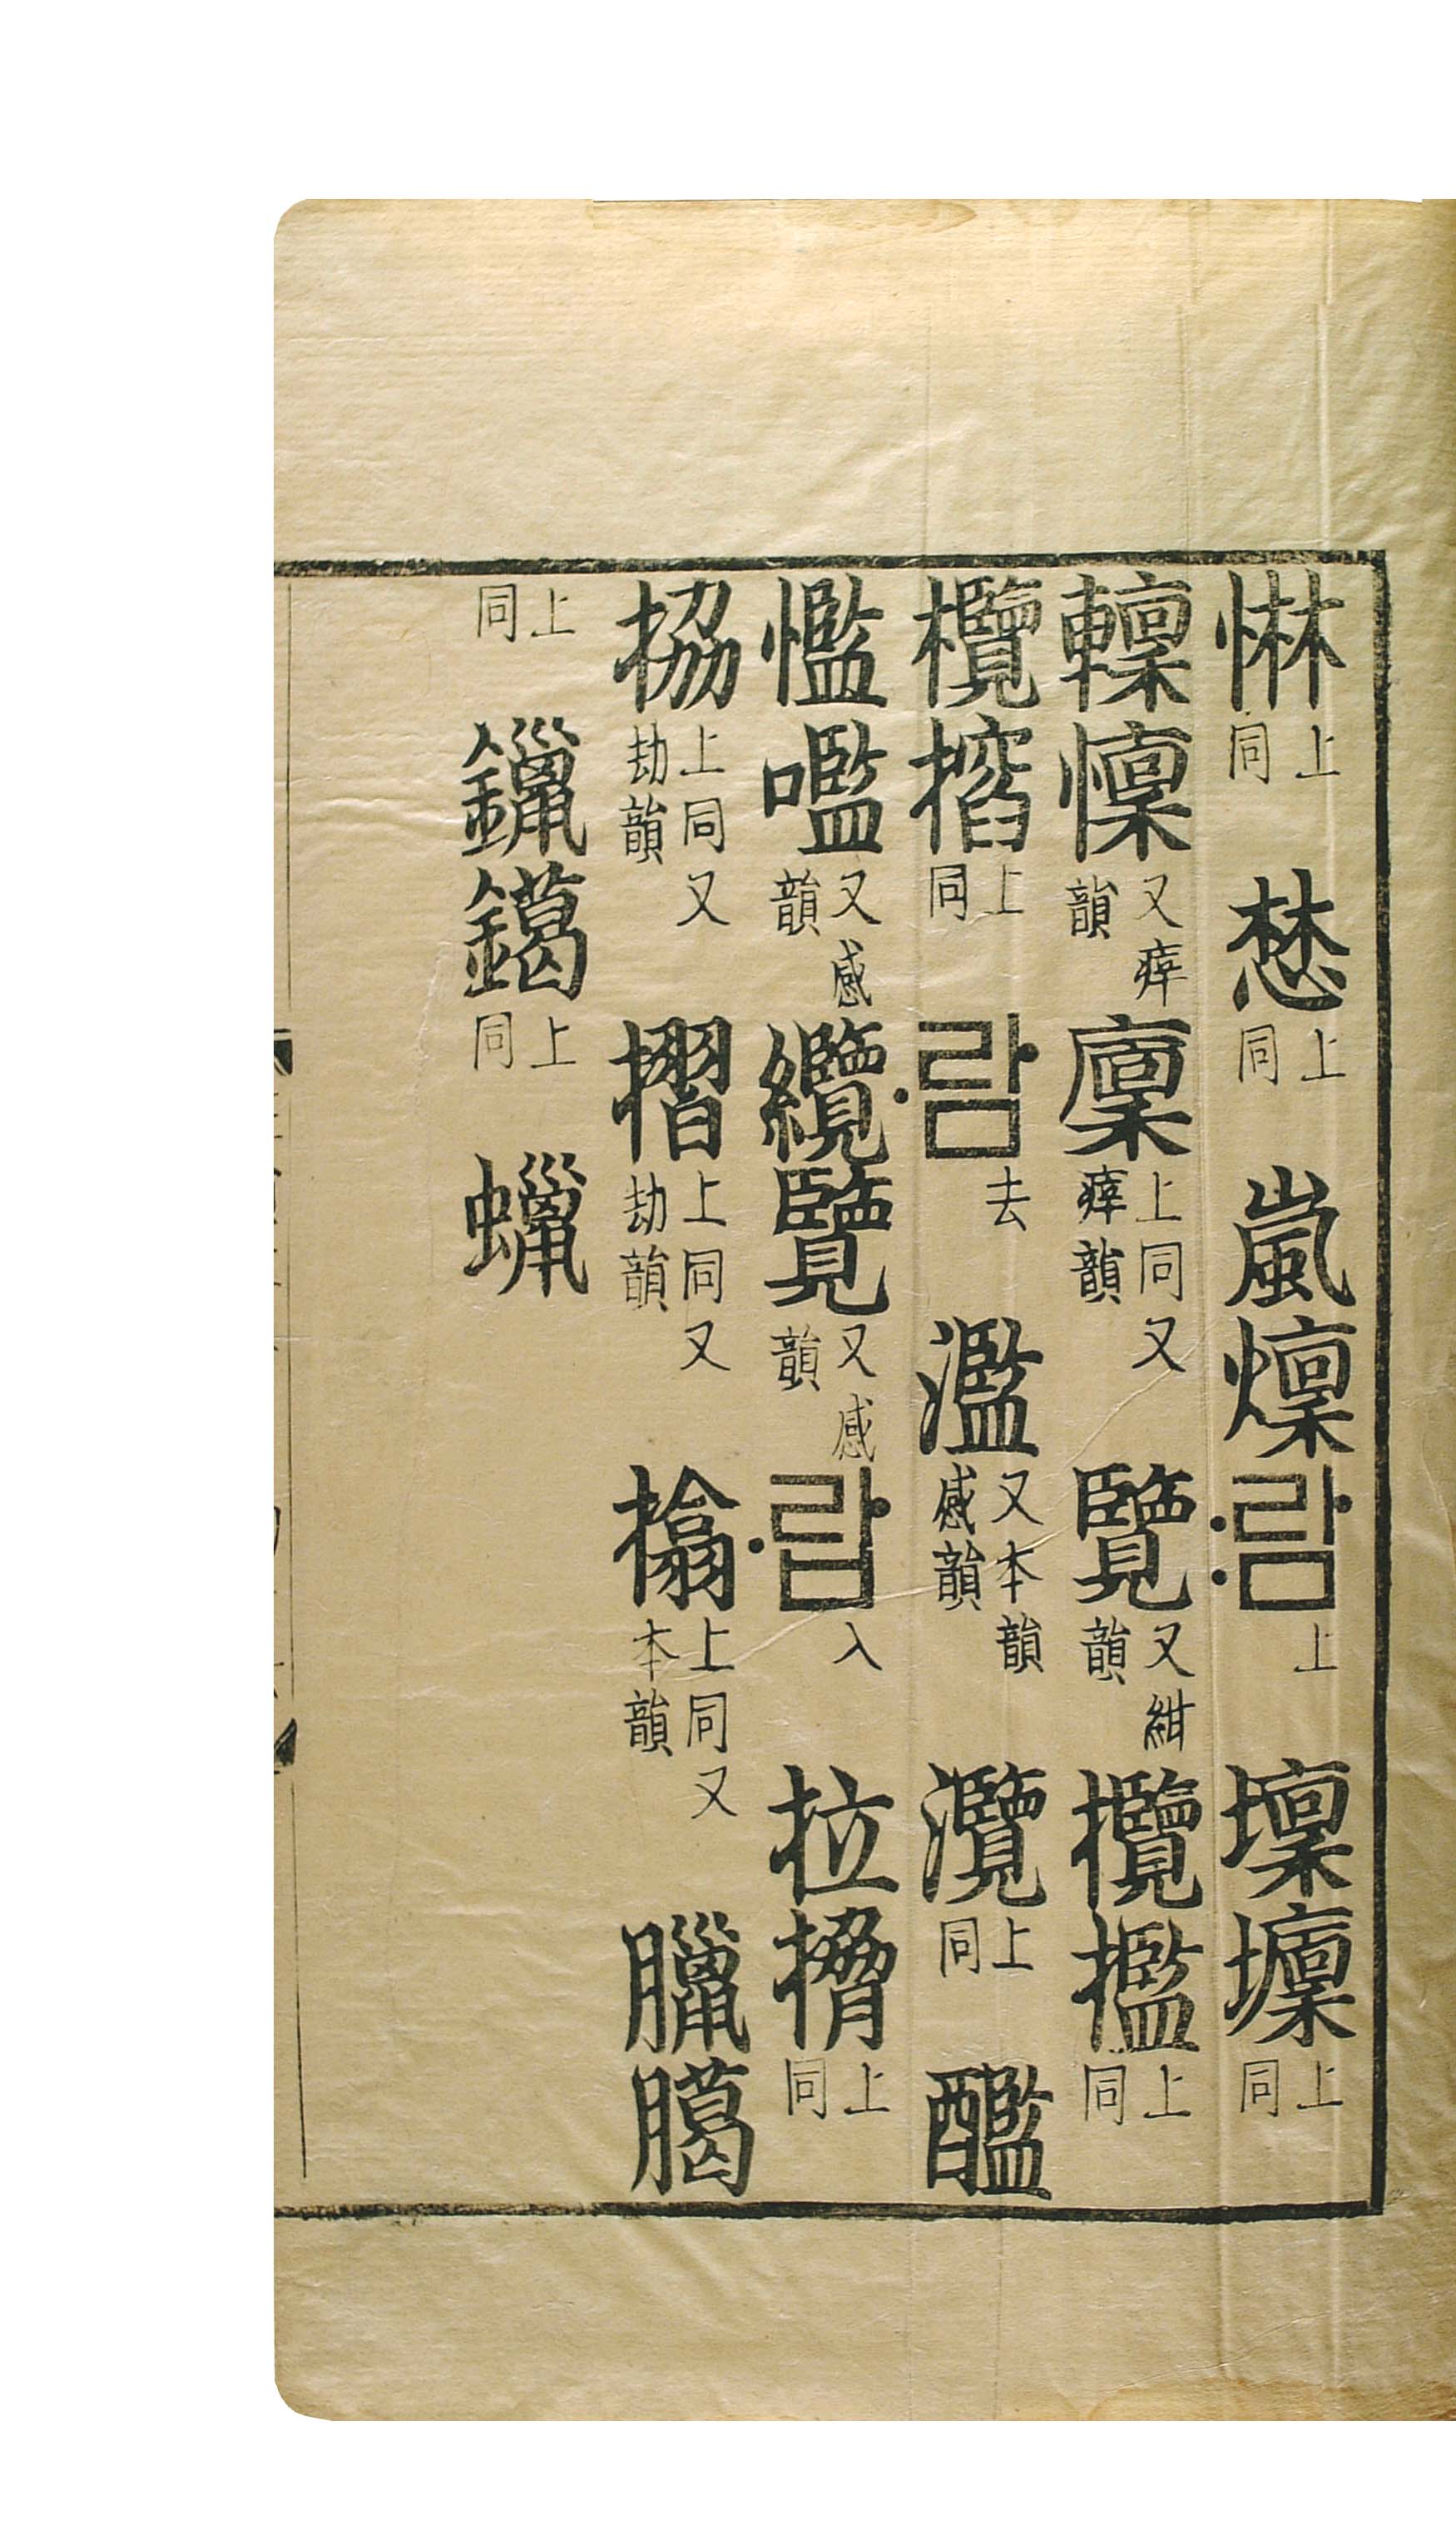 惏上同 惏上同 嵐燣〯람上 壈壈上同
轥懍又瘁韻 廩上同又瘁韻 覽又紺韻 攬㩜上同
欖㨫上同 〮람去 濫又本韻感韻 灠上同 醶
㜮嚂又感韻 纜覽又感韻 〮랍入 拉搚上同
拹上同又劫韻 摺上同又劫韻 㩉上同又本韻 臘臈
上同 鑞鎘上同 蠟